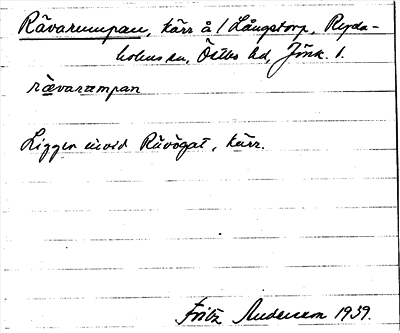 Rävarumpan, kärr å 1 Långstorp, Ryda-
holms sn, Östbo hd, Jönk. l.
rävarampan
Ligger invid Rävögat, kärr.
Fritz Anderson 1939.